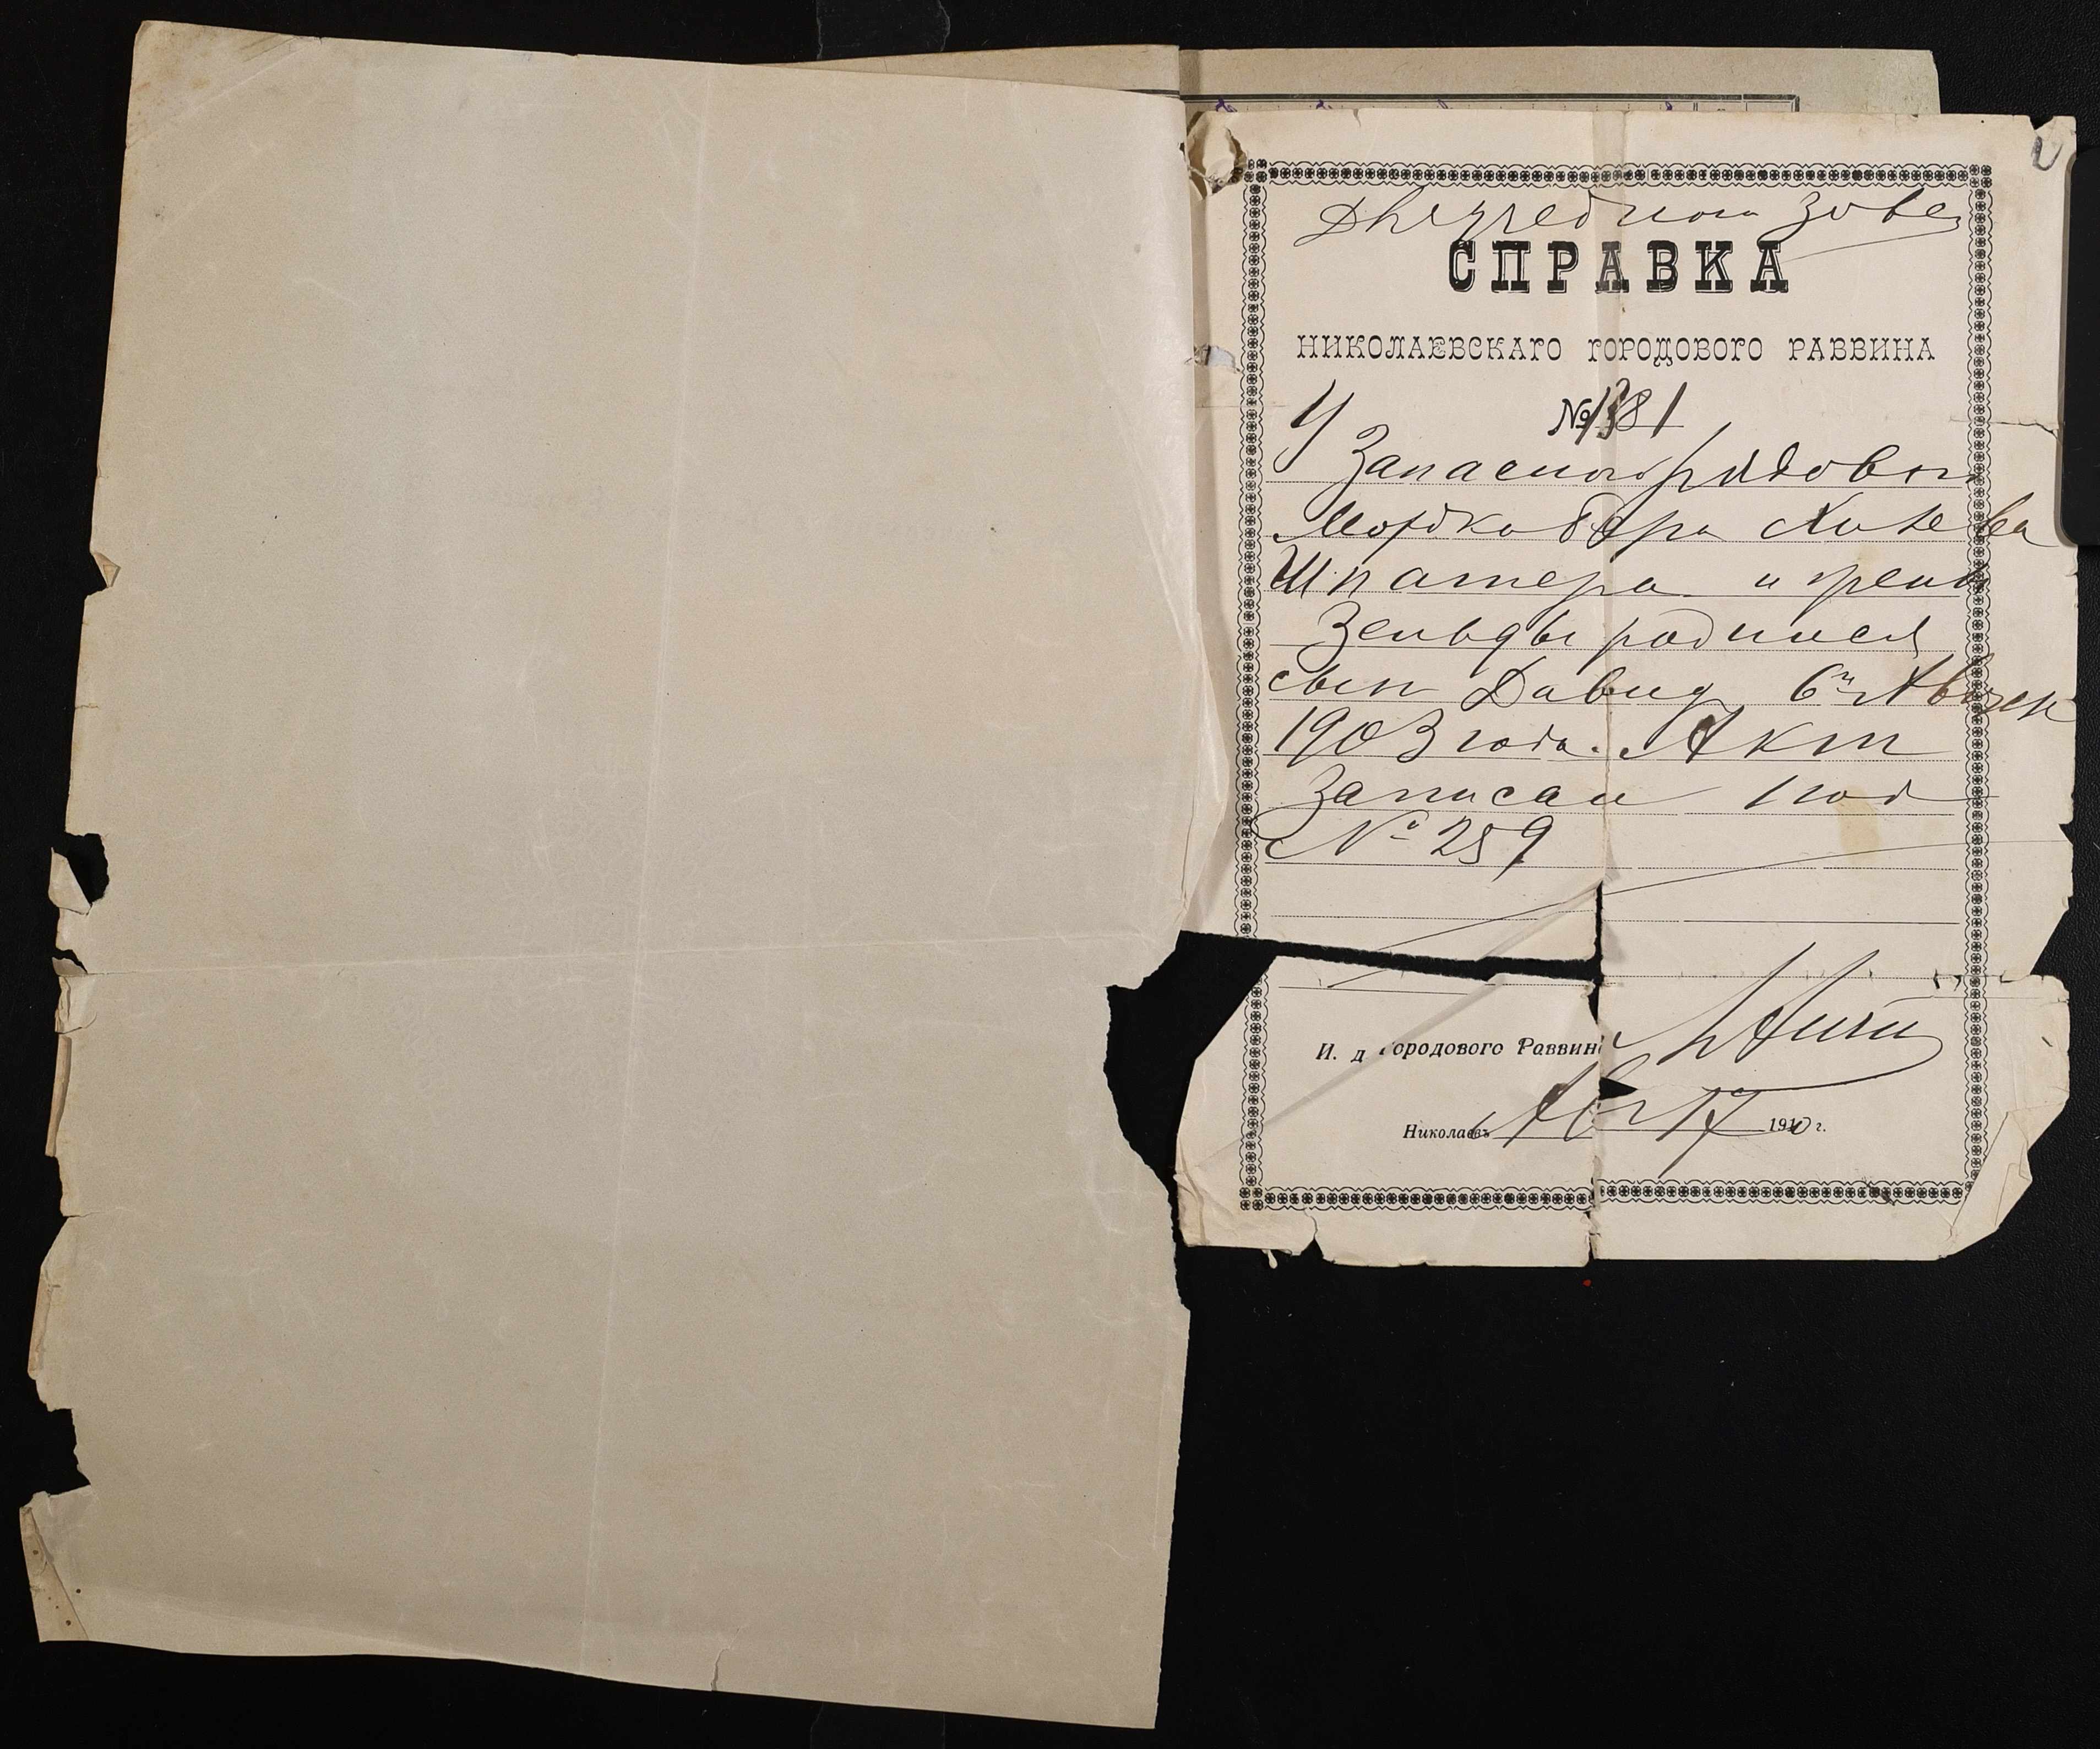 СПРАВКА
НИКОЛАЕВСКАГО ГОРОДОВОГО РАВВИНА
№ 1381
У
Запасного рядового
Мордко Бера
Шпатера и жены
Зельды родился
сын Давид 6го Август
1903 года. Акт
Записан под
№ 259
И. д Городового Раввина
Николаевъ Авг 17 1910 г.